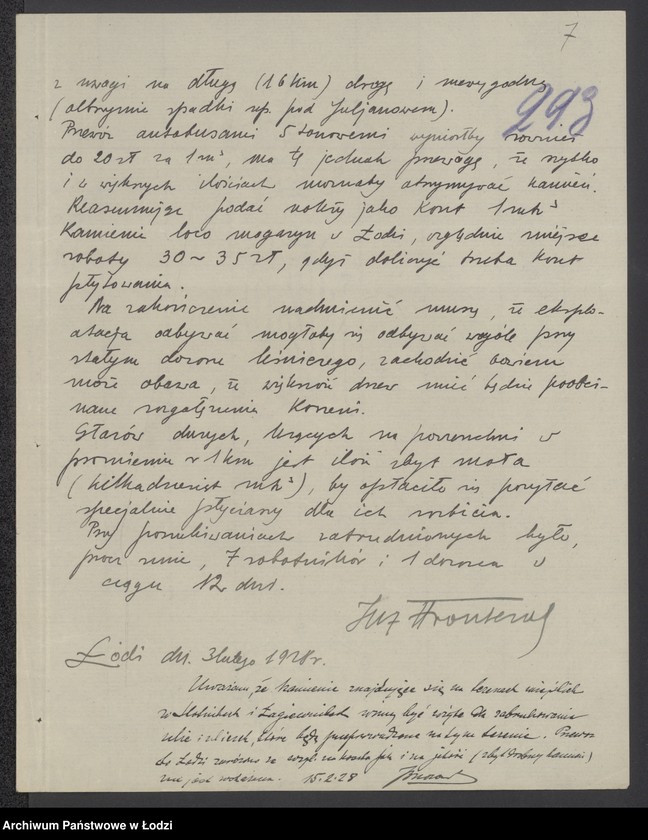 7
293
z uwagi na długą (16 km) drogę i niewygodną
(olbrzymie spadki np. pod Juljanowem).
Przewóz autobusami 5 tonowemi wyniósłby również
do 20 zł za 1 m³, ma tę jednak przewagę, że szybko
i w większych ilościach możnaby otrzymywać kamień.
Reasumując podać należy jako koszt 1 mtr³
kamienia loco magazyn w Łodzi, względnie miejsce
roboty 30 ~ 35 zł, gdyż doliczyć trzeba koszt
płytowania.
Na zakończenie nadmienić muszę, że eksplo-
atacja odbywać mogłaby się odbywać wogóle przy
stałym dozorze leśniczego, zachodzić bowiem
może obawa, że większość drzew mieć będzie poobci-
nane rozgałęzienia korzeni.
Głazów dużych, leżących na powierzchni w
promieniu 1 km jest ilość zbyt mała
(kilkadziesiąt mtr³), by opłaciło się
specjalnie dla ich rozbicia.
Przy poszukiwaniach zatrudnionych było,
prócz mnie, 7 robotników i 1 dozorca w
ciągu 12 dni.
Inż
Łódź dn. 3 lutego 1928 r.
Uważam, że kamienie znajdujące się na terenach miejskich
w i Łagiewnikach winny być wzięte do zabrukowania
ulic i , które będą przeprowadzone na tym terenie. Przewóz
do Łodzi zarówno ze wzgl. na koszta jak i na jakość (zbyt drobny kamień)
nie jest wskazana. 15.2.28
Archiwum Państwowe w Łodzi